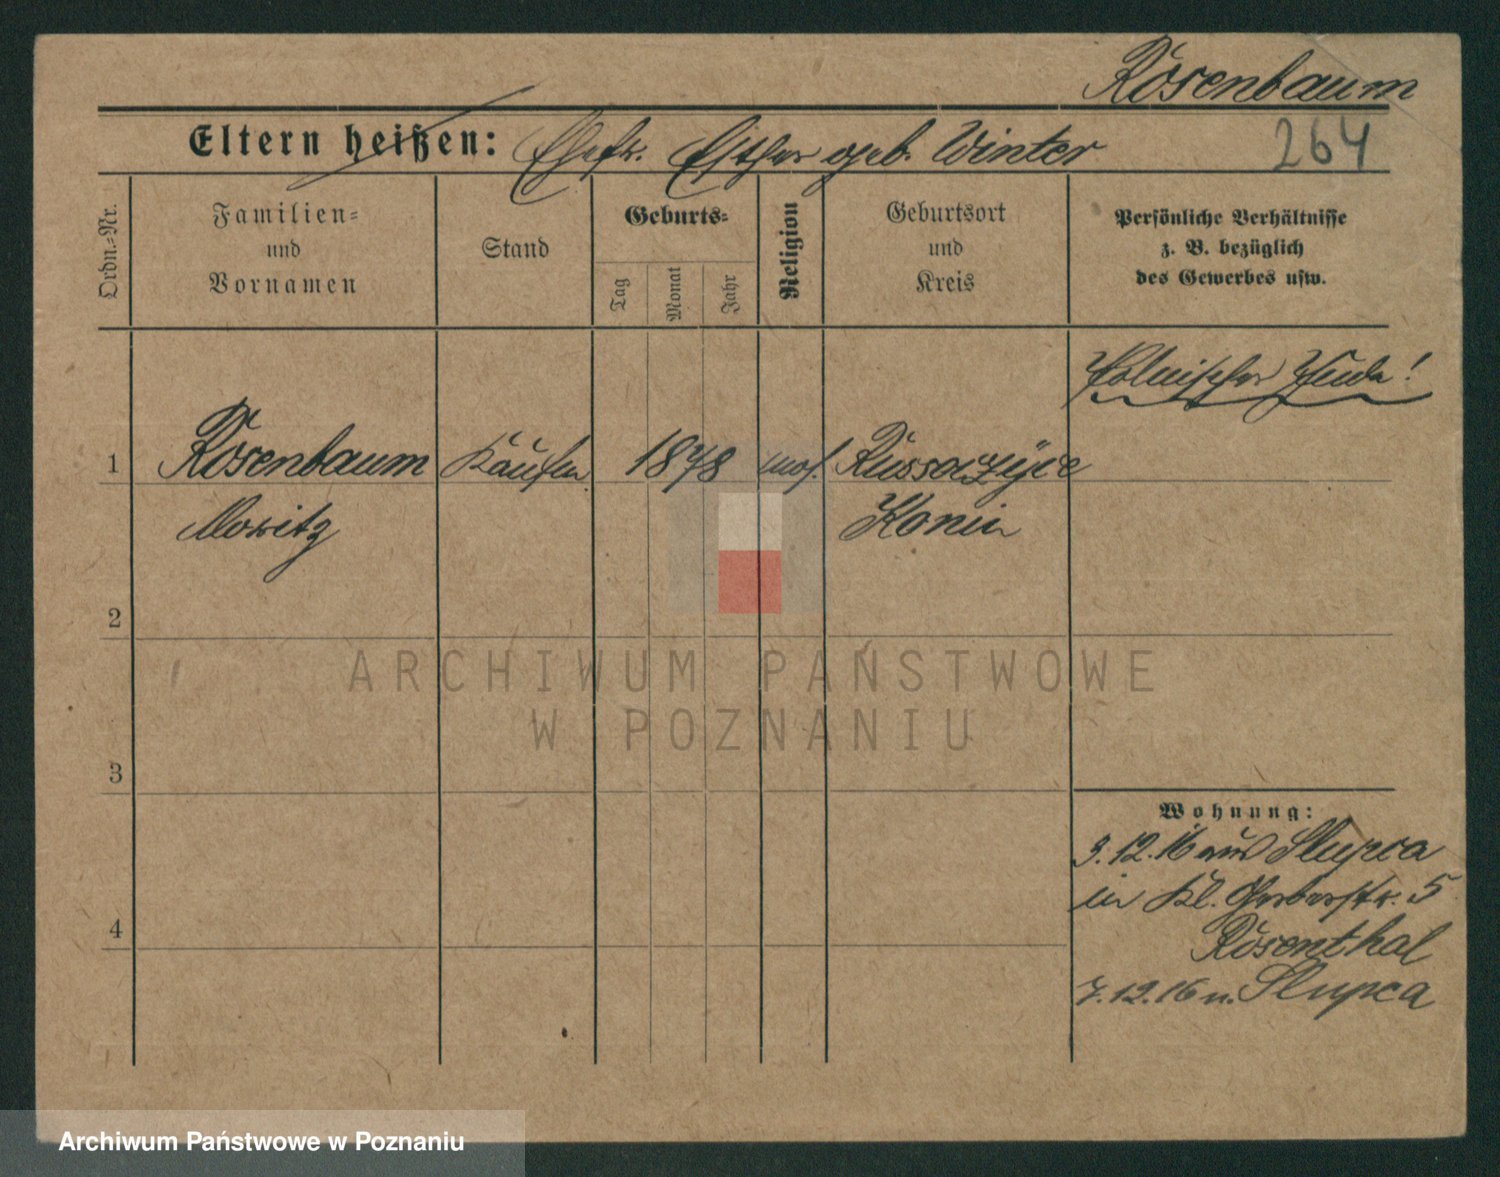 Rosenbaum
Eltern heißen: Ehefr. Esther geb. Winter 264
Ordn.-Nr.
Familien-
und
Vornamen
Stand
Geburts-
Tag
Monat
Jahr
Religion
Geburtsort
und
Kreis
Persönliche Verhältnisse
z. B. bezüglich
des Gewerbes usw.
Polnischer Jude!
1 Rosenbaum Kaufm. 1878 mos.
Moritz Konin
2
3
4
Wohnung:
3.12.16 aus Slupca
in Kl. Gerberstr. 5
Rosenthal
7.12.16 n. Slupca
ARCHIWUM PAŃSTWOWE
W POZNANIU
Archiwum Państwowe w Poznaniu